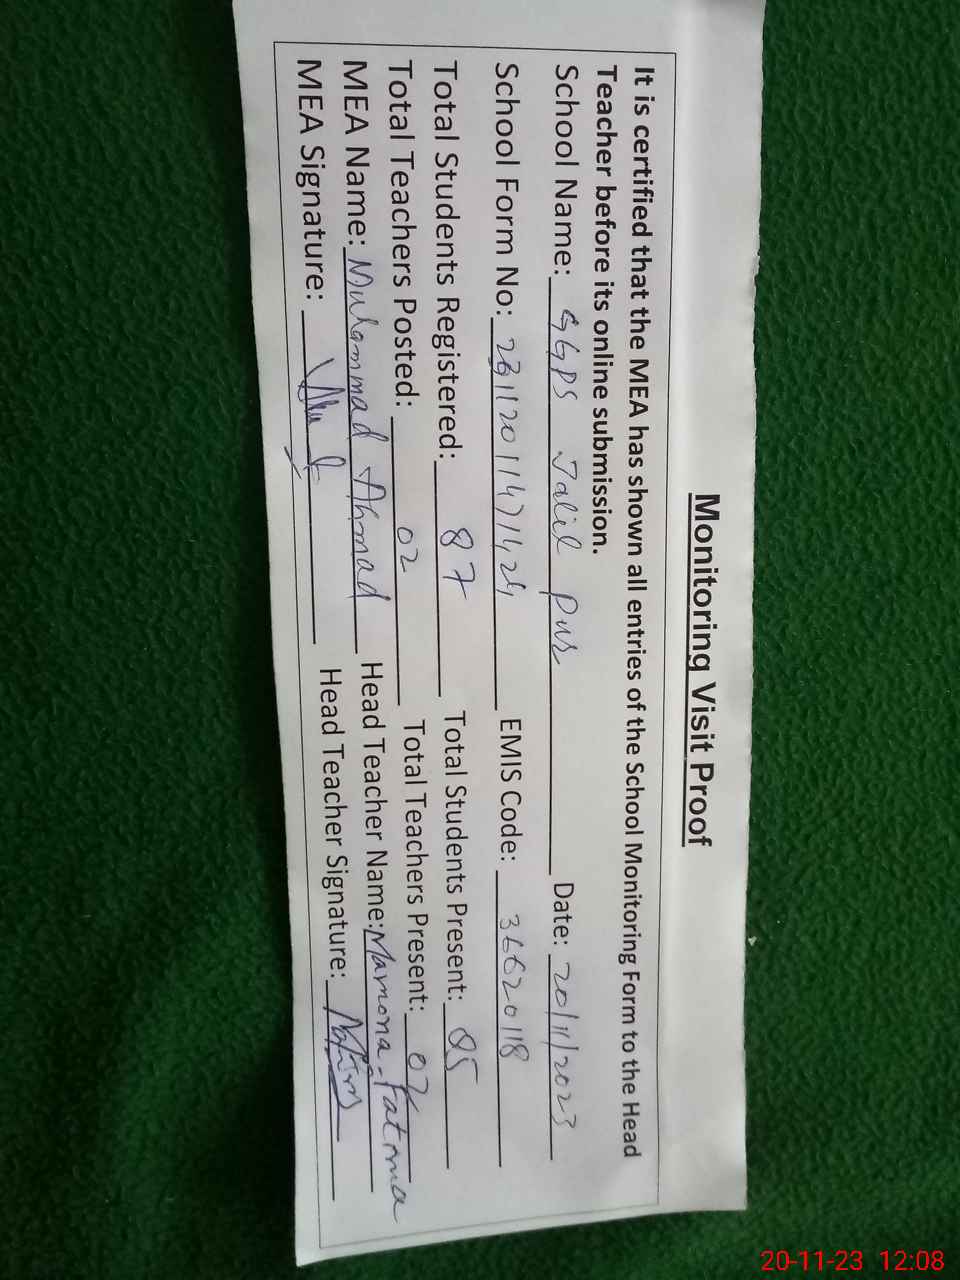 Monitoring Visit Proof
It is certified that the MEA has shown all entries of the School Monitoring Form to the Head
Teacher before its online submission.
School Name: GGPS Jalil Pur Date: 20/11/2023
School Form No: EMIS Code: 36620118
Total Students Registered: 87 Total Students Present: 85
Total Teachers Posted: 02 Total Teachers Present: 02
MEA Name: Muhammad Ahmad Head Teacher Name: Mamona Fatima
MEA Signature: Head Teacher Signature:
20-11-23 12:08